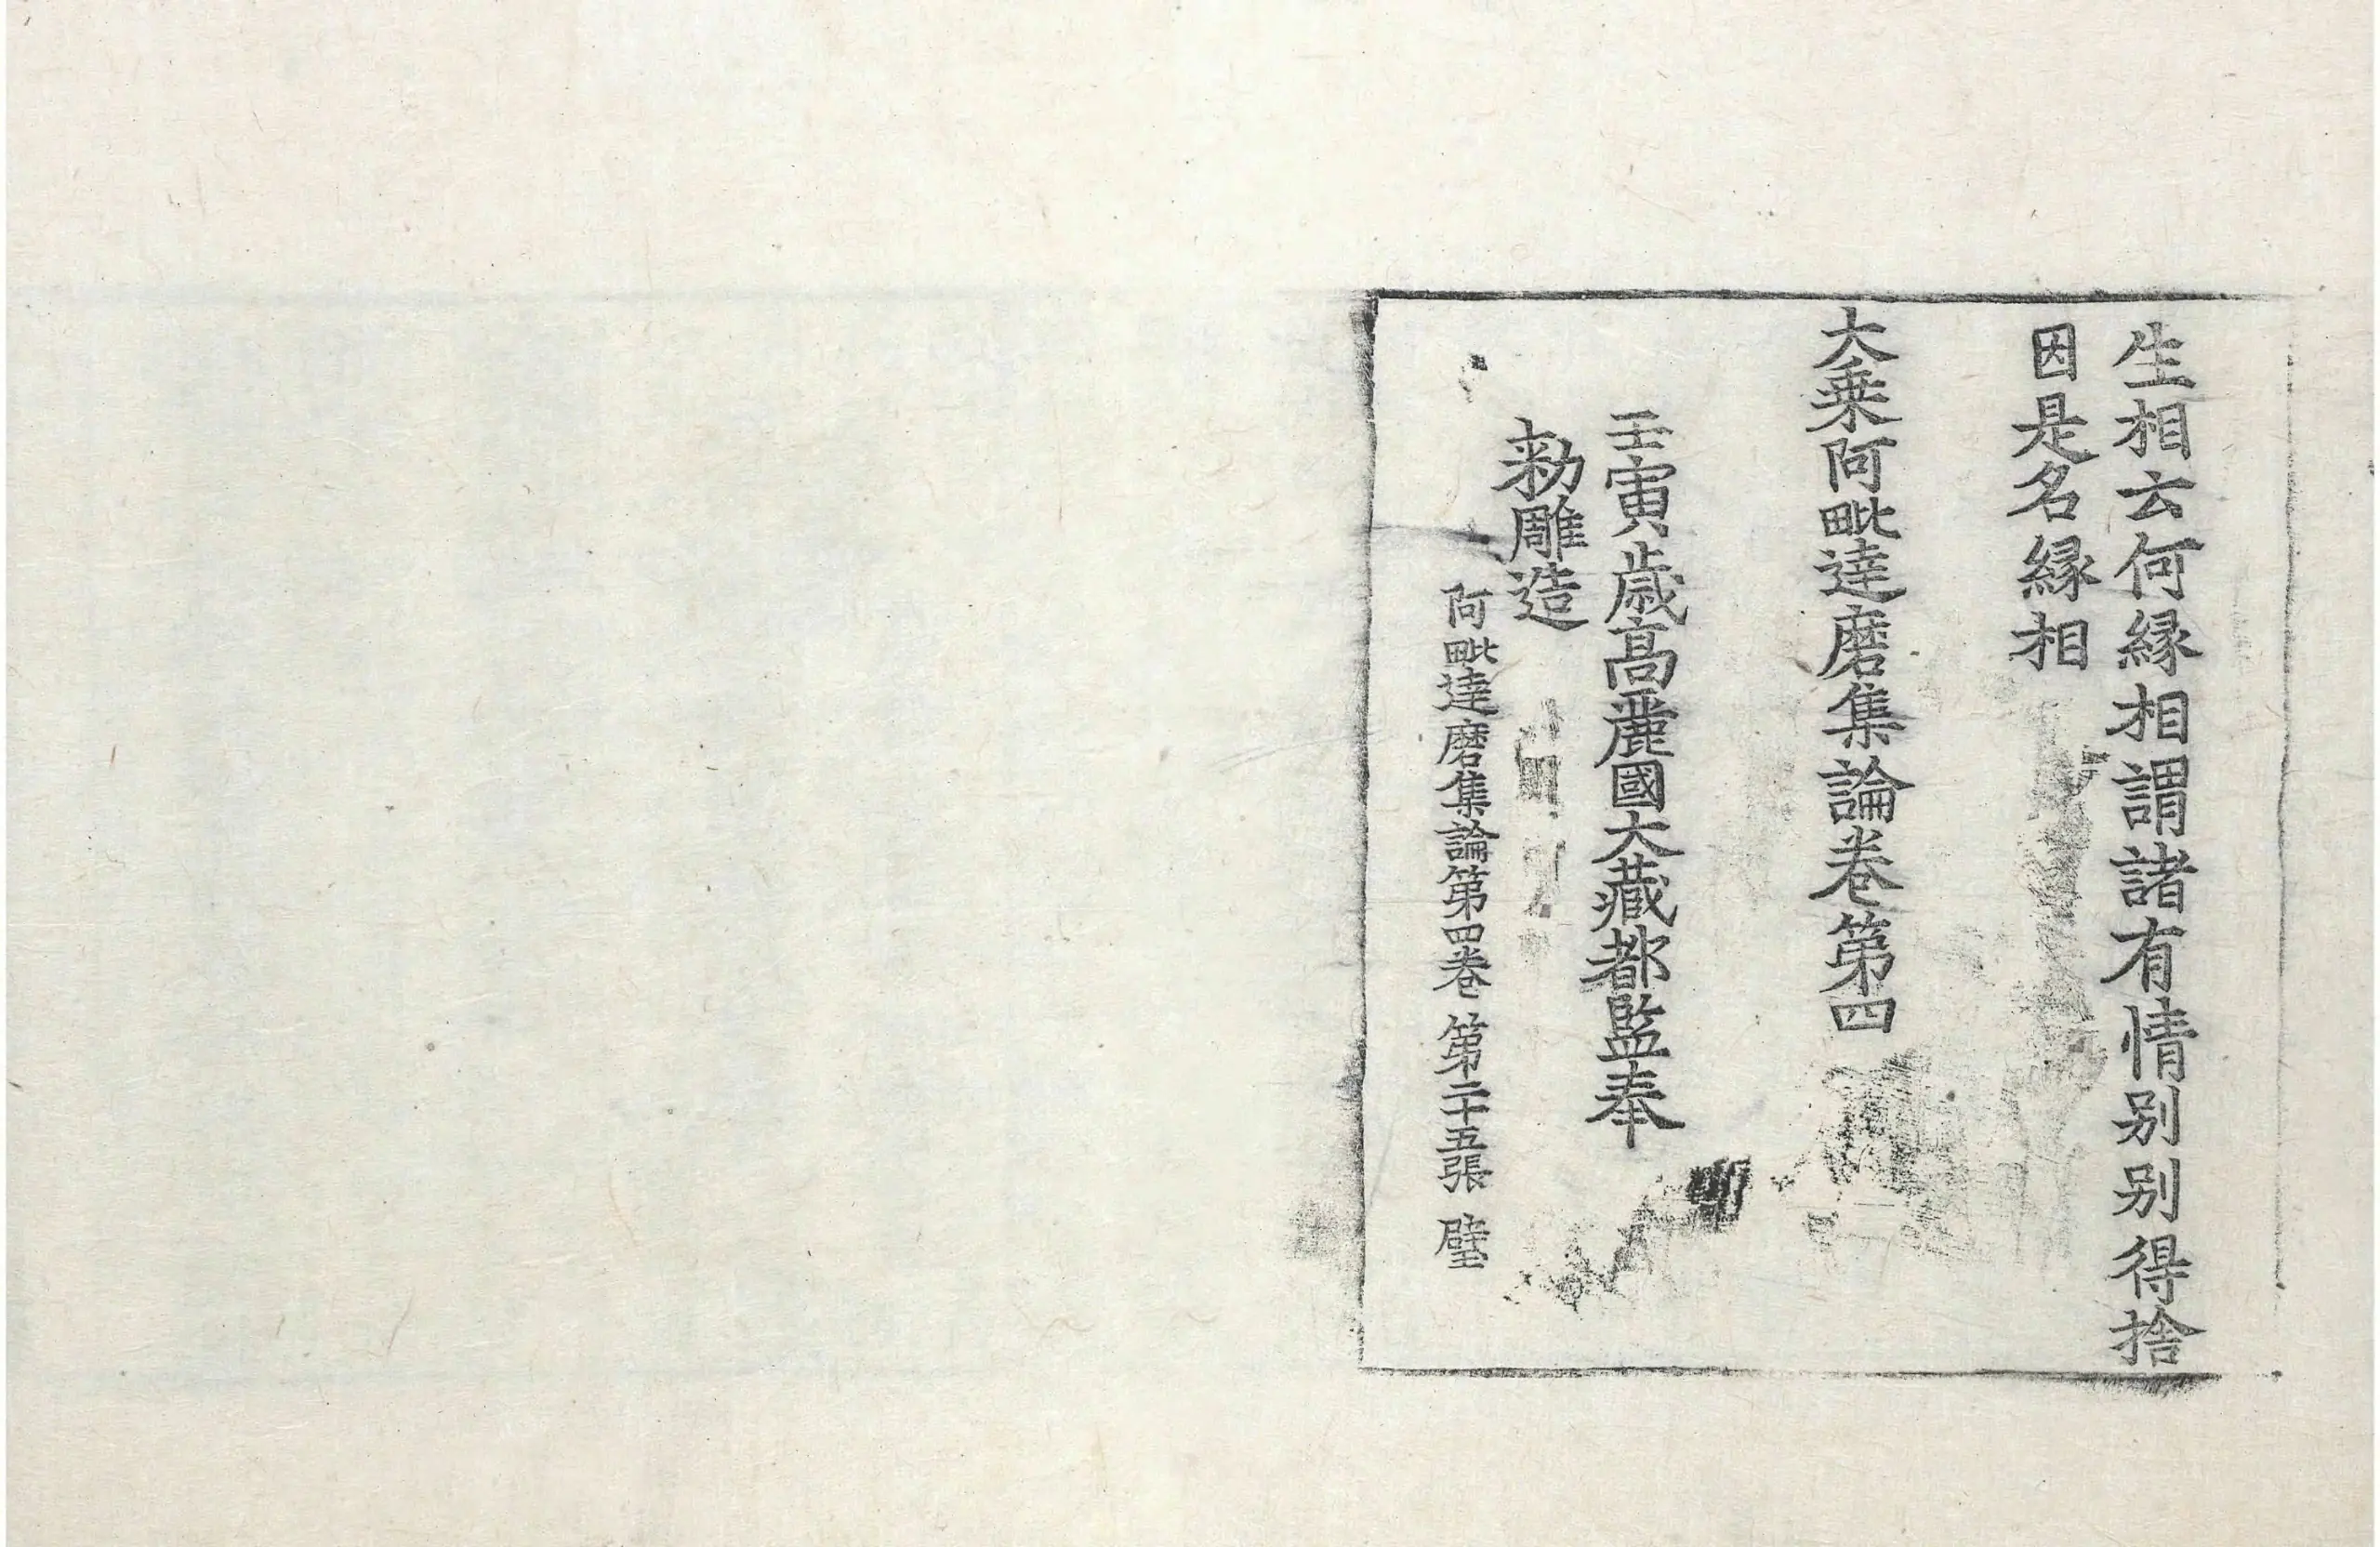 生相云何縁相謂諸有情别别得捨
因是名縁相
大乗阿毗達磨集論卷第四
壬寅歳高麗國大藏都監奉
勅雕造
阿毗達磨集論第四卷 第二十五張 壁